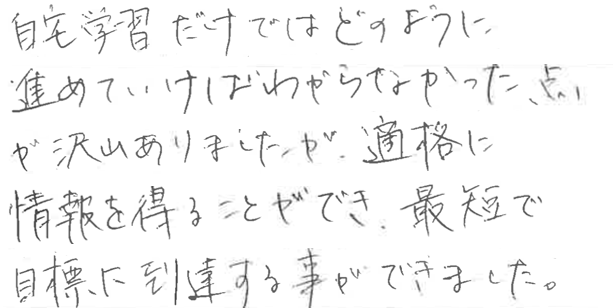 自宅学習だけではどのように
進めていけばわからなかった、点、
が沢山ありましたが、適格に
情報を得ることができ、最短で
目標に到達する事ができました。